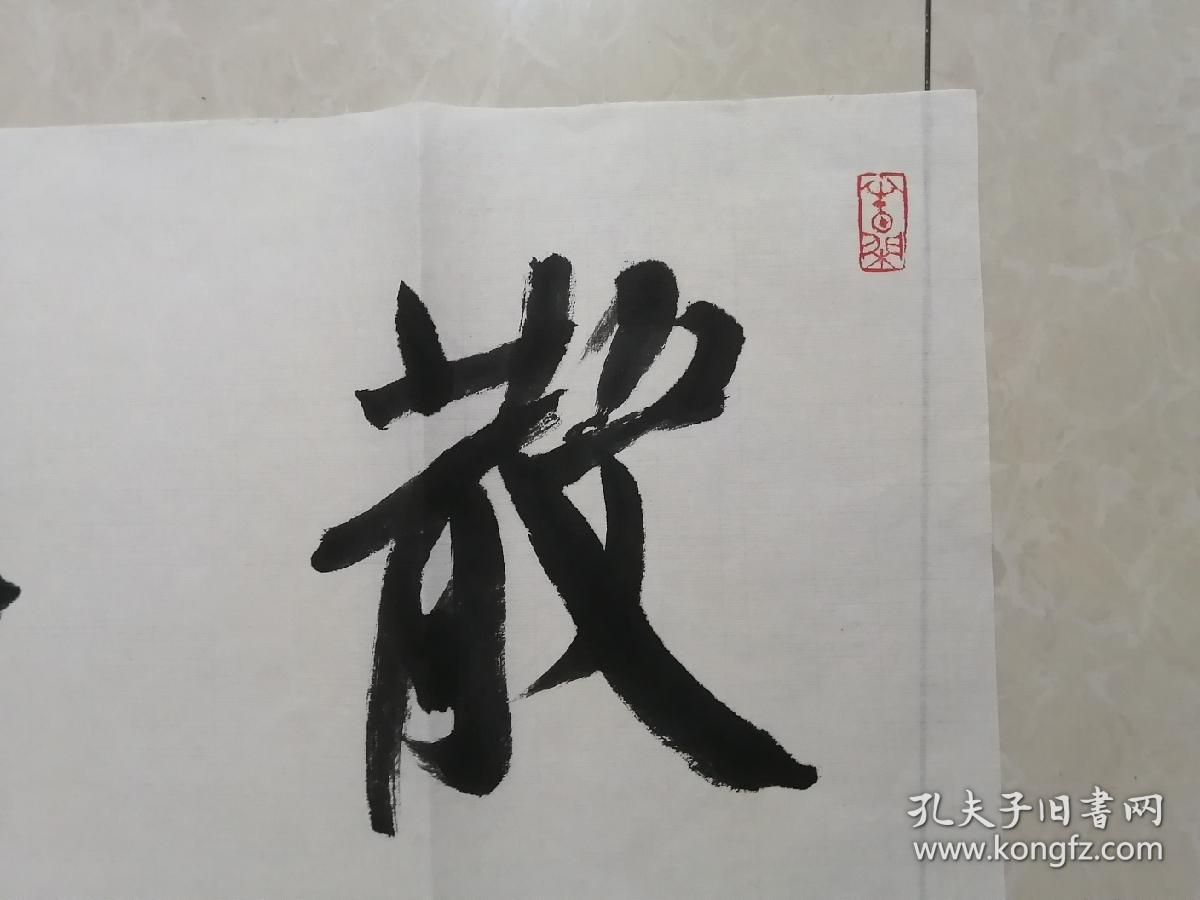 散
孔夫子旧書网
www.kongfz.com